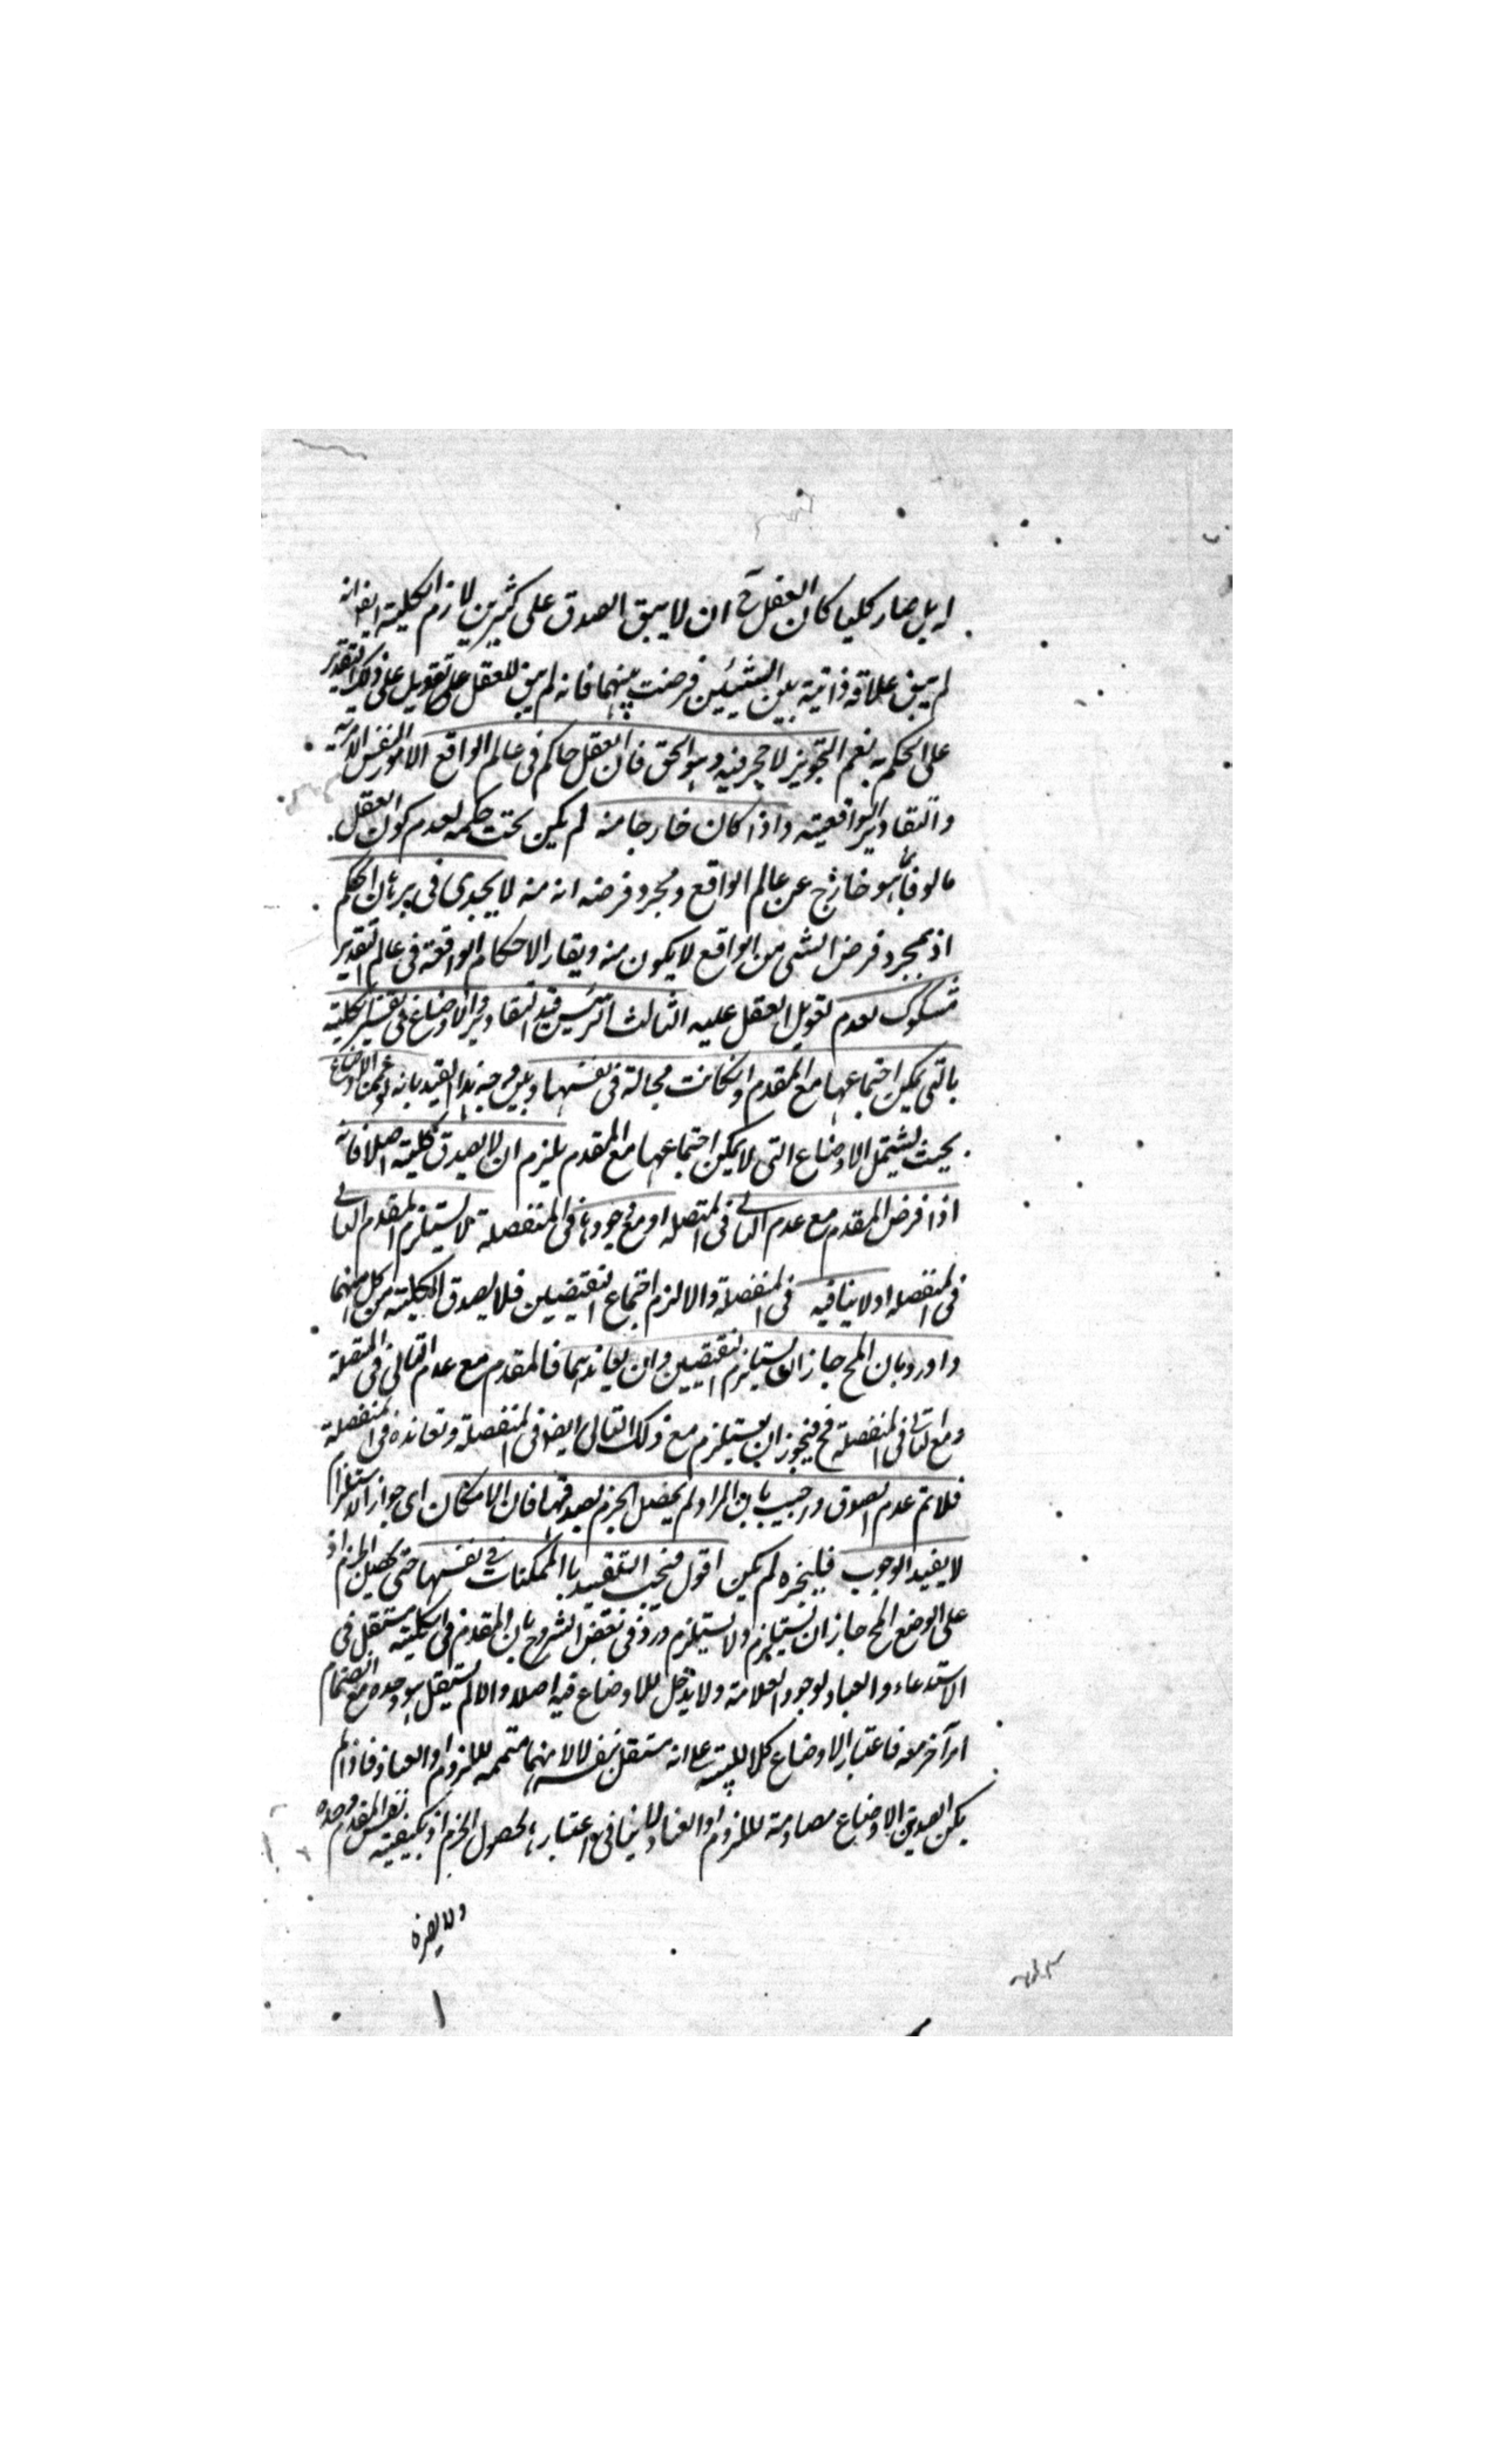 له بل صار كليا كان العقل ح ان لا يبق الصدق على كثيرين لازم الكلية ايضا انه
لم يبق علاقة ذاتية بين الشيئين فرضت بينهما فانه لم يبق للعقل تعويل على ذلك التقدير
على الحكم به نعم التجويز لا حجر فيه وهو الحق فان العقل حاكم فى عالم الواقع الامور النفس الامرية
والتقادير الواقعية واذا كان خارجا منه لم يكن تحت حكمه لعدم كون العقل
مالوفا بما هو خارج عن عالم الواقع ومجرد فرضه انه منه لا يجدى فى الحكم
اذ بمجرد فرض الشئ من الواقع لا يكون منه وبقاء الاحكام الواقعة فى عالم التقدير
مشكوك لعدم تعويل العقل عليه الثالث الرئيس قيد التقادير والاوضاع فى تفسير الكلية
بالتى يمكن اجتماعها مع المقدم وان كانت محالة فى نفسها وبين وجه هذا القيد بانه لو عممنا الاوضاع
بحيث يشتمل الاوضاع التى لا يمكن اجتماعها مع المقدم يلزم ان لا يصدق كلية اصلا فانه
اذا فرض المقدم مع عدم التالى فى المتصلة او مع وجودها فى المنفصلة لا يستلزم المقدم التالى
فى المنفصلة او لا ينافيه فى المنفصلة والا لزم اجتماع النقيضين فلا يصدق الكلية من كل منهما
واورد بان المح جاز ان يستلزم النقيضين وان يعاندهما فالمقدم مع عدم التالى فى المتصلة
ومع التالى فى المنفصلة مح فيجوز ان يستلزم مع ذلك التالى ايضا فى المنفصلة وتعانده فى المنفصلة
فلا تم عدم الصدق واجيب بان المراد لم يحصل الجزم بصدقها فان الامكان اى جواز الاستلزام
لا يفيد الوجوب لم يكن اقول فيجب التقييد بالممكنات فى نفسها حتى يحصل الجزم اذ
على الوضع المح جاز ان يستلزم ولا يستلزم ورد فى بعض الشروح بان المقدم فى الكلية مستقل فى
الاستدعاء والعناد لوجود العلامة ولا دخل للاوضاع فيه اصلا والا لم يستقل هو وحده مع انضمام
امر آخر معه فاعتبار الاوضاع على انه مستقل بنفسه لا لانها متممه للزوم او العناد فاذا لم
يكن الاوضاع مصادمة للزوم او العناد لا ينافى اعتبارها لحصول الجزم اذ يكفيه نفس المقدم وحده
ولا يضره